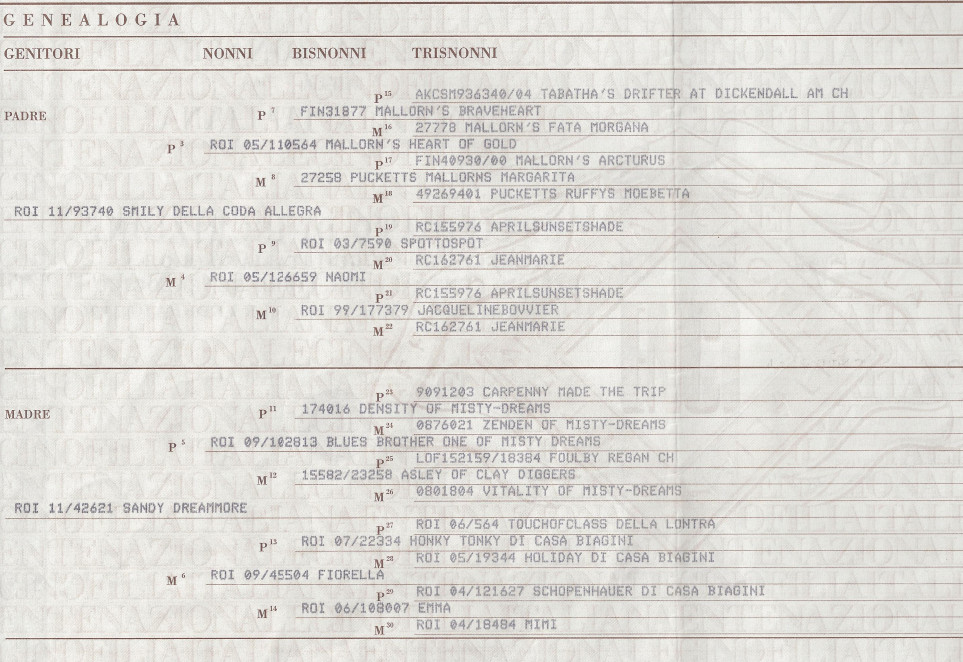 GENEALOGIA
GENITORI NONNI BISNONNI TRISNONNI
P 15 AKCSM936340/04 TABATHA'S DRIFTER AT DICKENDALL AM CH
PADRE P 7 FIN31877 MALLORN'S BRAVEHEART
M 16 27778 MALLORN'S FATA MORGANA
P 3 ROI 05/110564 MALLORN'S HEART OF GOLD
P 17 FIN40930/00 MALLORN'S ARCTURUS
M 8 27258 PUCKETTS MALLORNS MARGARITA
M 18 49269401 PUCKETTS RUFFYS MOEBETTA
ROI 11/93740 SMILY DELLA CODA ALLEGRA
P 19 RC155976 APRILSUNSETSHADE
P 9 ROI 03/7590 SPOTTOSPOT
M 20 RC162761 JEANMARIE
M 4 ROI 05/126659 NAOMI
P 21 RC155976 APRILSUNSETSHADE
M 10 ROI 99/177379 JACQUELINEBOVVIER
M 22 RC162761 JEANMARIE
P 23 9091203 CARPENNY MADE THE TRIP
MADRE P 11 174016 DENSITY OF MISTY-DREAMS
M 24 0876021 ZENDEN OF MISTY-DREAMS
P 5 ROI 09/102813 BLUES BROTHER ONE OF MISTY DREAMS
P 25 LOF152159/18384 FOULBY REGAN CH
M 12 15582/23258 ASLEY OF CLAY DIGGERS
M 26 0801804 VITALITY OF MISTY-DREAMS
ROI 11/42621 SANDY DREAMMORE
P 27 ROI 06/564 TOUCHOFCLASS DELLA LONTRA
P 13 ROI 07/22334 HONKY TONKY DI CASA BIAGINI
M 28 ROI 05/19344 HOLIDAY DI CASA BIAGINI
M 6 ROI 09/45504 FIORELLA
P 29 ROI 04/121627 SCHOPENHAUER DI CASA BIAGINI
M 14 ROI 06/108007 EMMA
M 30 ROI 04/18484 MIMI